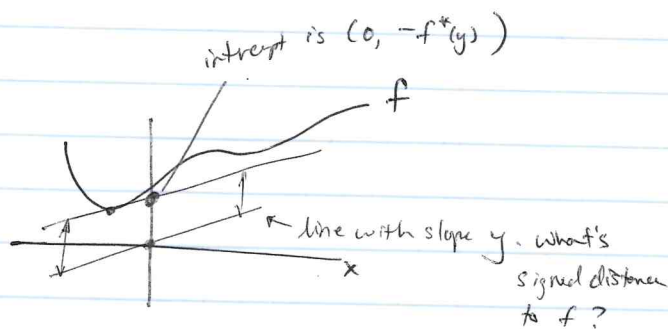 intrcept is (0, -f*(y))
f
line with slope y. what's
x
signed distance
to f?